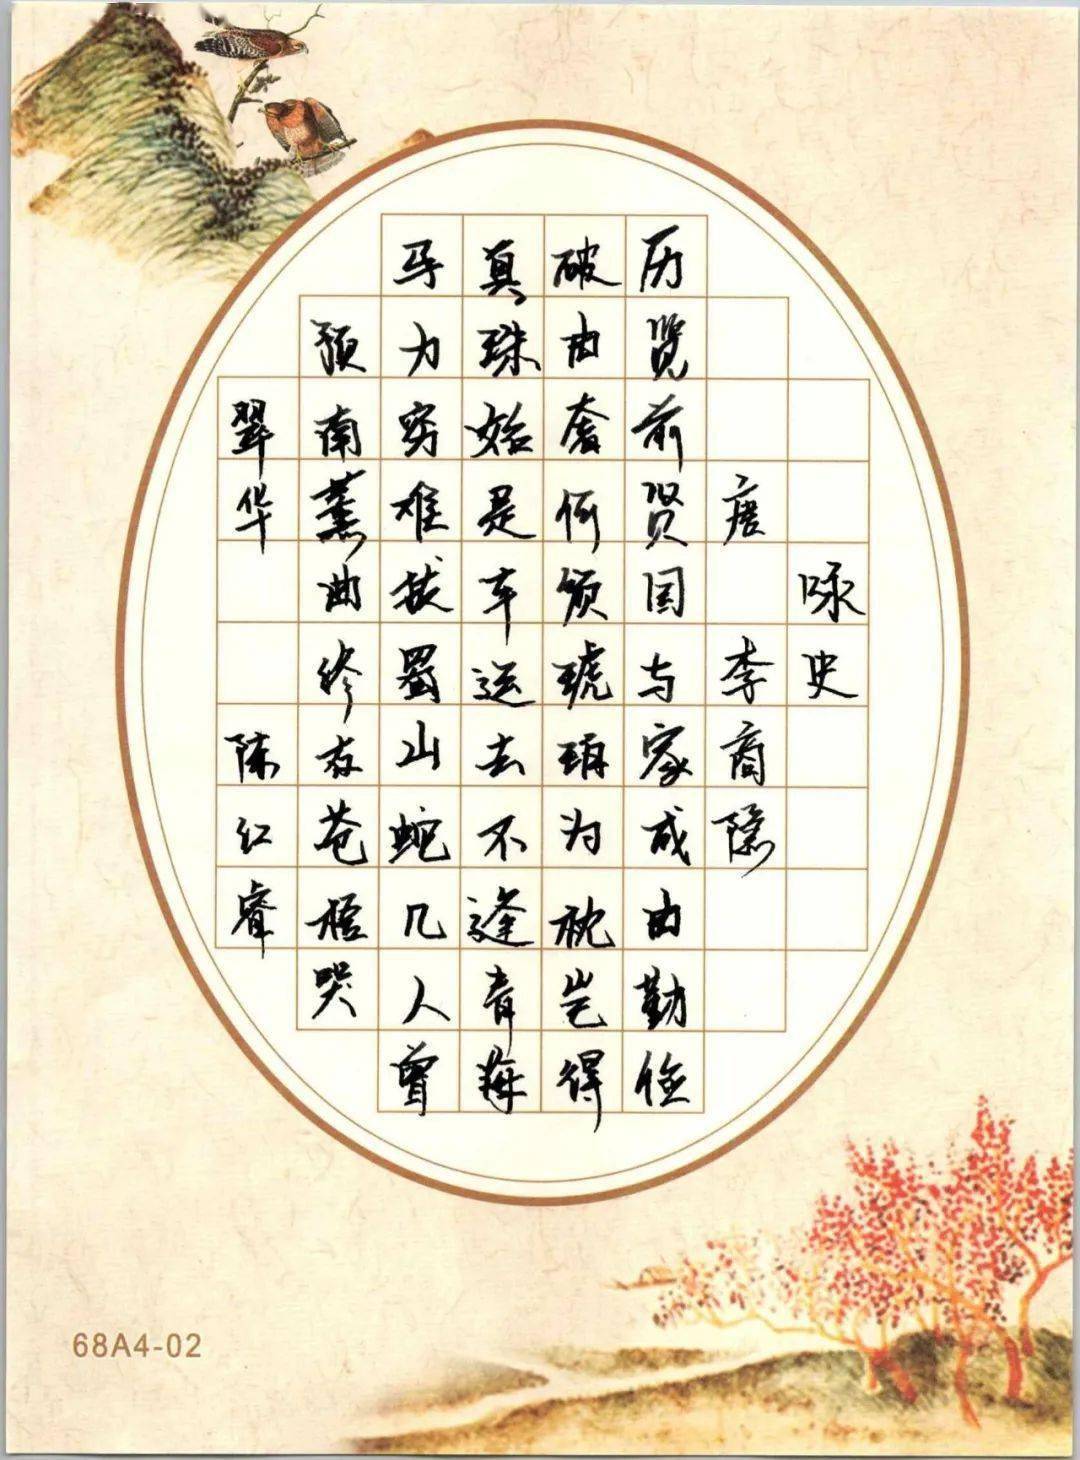 咏史
唐 李商隐
历览前贤国与家成由勤俭
破由奢何须琥珀为枕岂得
真珠始是车运去不逢青海
马力穷难拔蜀山蛇几人曾
预南薰曲终古苍梧哭
翠华 陈红睿
68A4-02